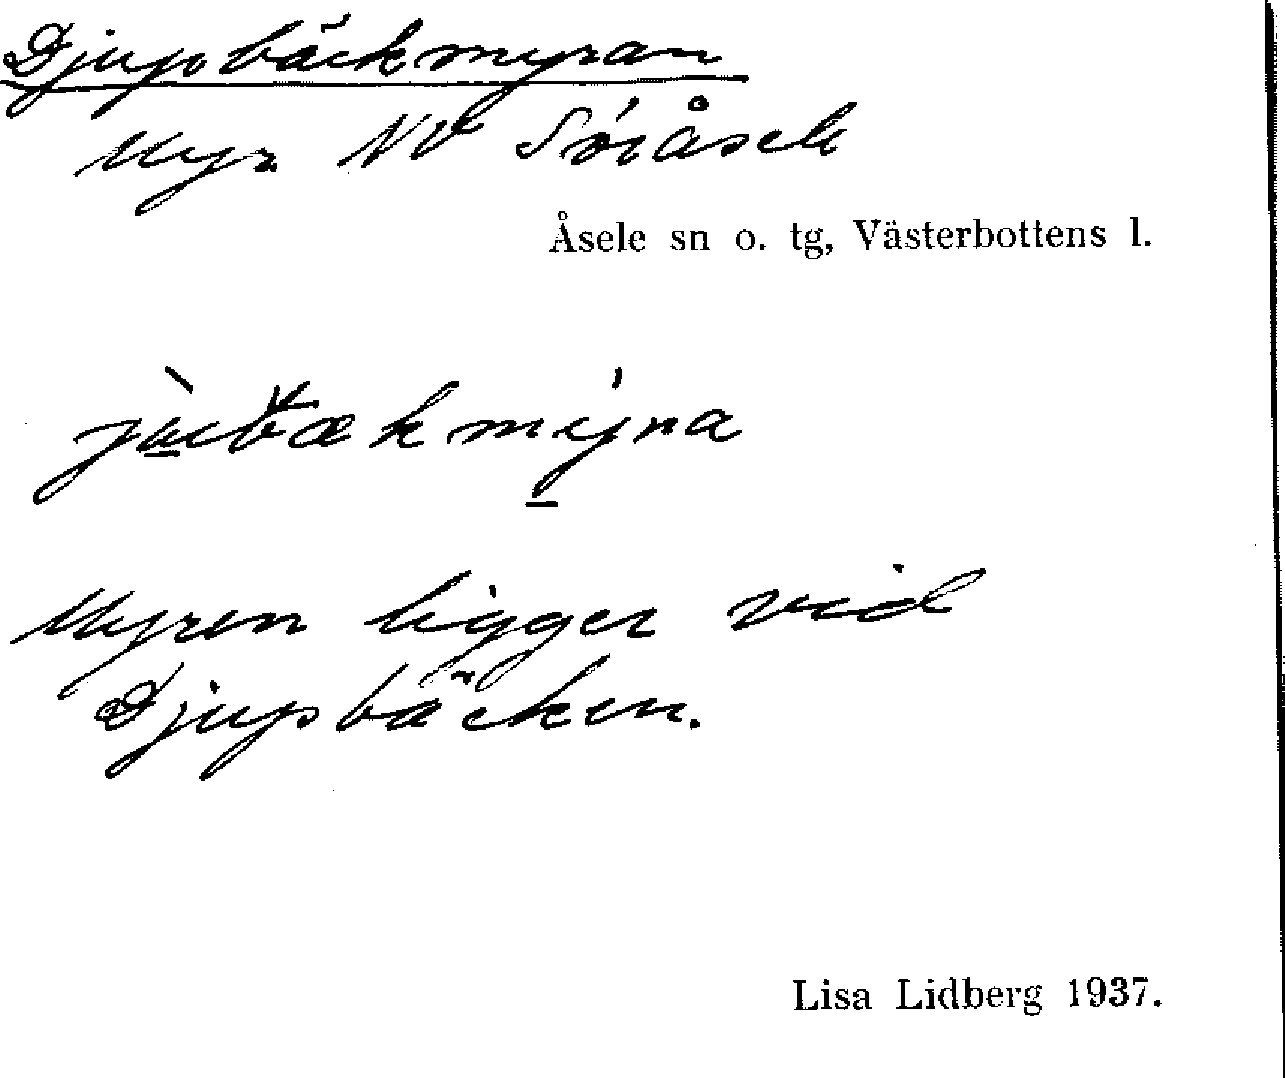 Djupbäckmyran
Myr NV Söråsele
Åsele sn o. tg, Västerbottens l.
Myren ligger vid
Djupbäcken.
Lisa Lidberg 1937.